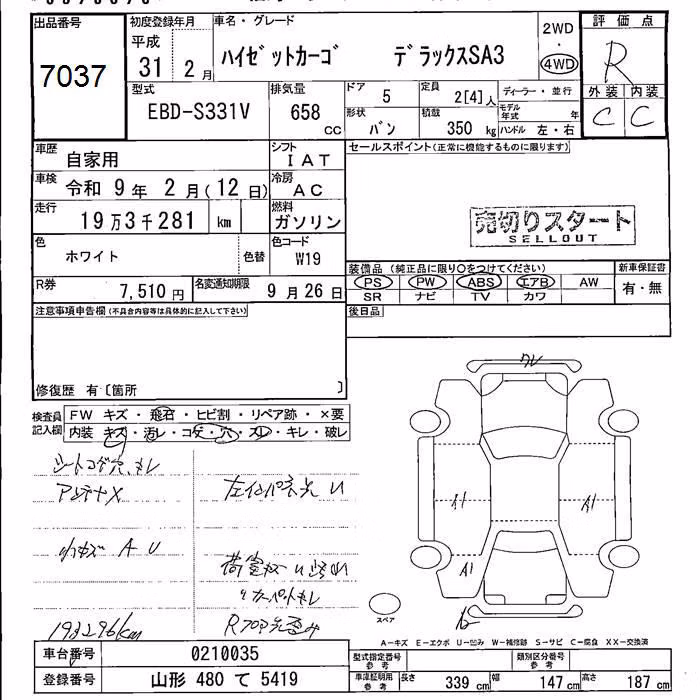 出品番号 初度登録年月 車名・グレード 2WD 評価点
7037 平成 31 2月 ハイゼットカーゴ デラックスSA3 ・ 4WD R
型式 排気量 ドア 5 定員 2[4]人 ディーラー・並行 外装 内装
EBD-S331V 658 cc 形状 バン 積載 350 kg モデル年式 年 ハンドル 左・右 C C
車歴 自家用 シフト IAT セールスポイント(正常に機能するものに限ります)
車検 令和 9年 2月(12日) 冷房 AC
走行 19万3千281 km 燃料 ガソリン 売切りスタート
SELLOUT
色 ホワイト 色替 色コード W19
装備品 (純正品に限り○をつけてください) 新車保証書
R券 7,510円 名変通知期限 9月26日 PS PW ABS エアB AW 有・無
SR ナビ TV カワ
注意事項申告欄(不具合内容等は具体的に記入して下さい) 後日品
修復歴 有〔箇所 〕
ワレ
検査員記入欄 FW キズ・飛石・ヒビ割・リペア跡・×要
内装 キズ・汚レ・コゲ・穴・スレ・キレ・破レ
シートコゲ穴、キレ
アンテナX
A1
A1
小キズ A U
A1
193296km
スペア
A-キズ E-エクボ U-凹み W-補修跡 S-サビ C-腐食 XX-交換済
車台番号 0210035 型式指定番号 参考 類別区分番号 参考
登録番号 山形 480 て 5419 車庫証明用 参考 長さ 339 cm 幅 147 cm 高さ 187 cm